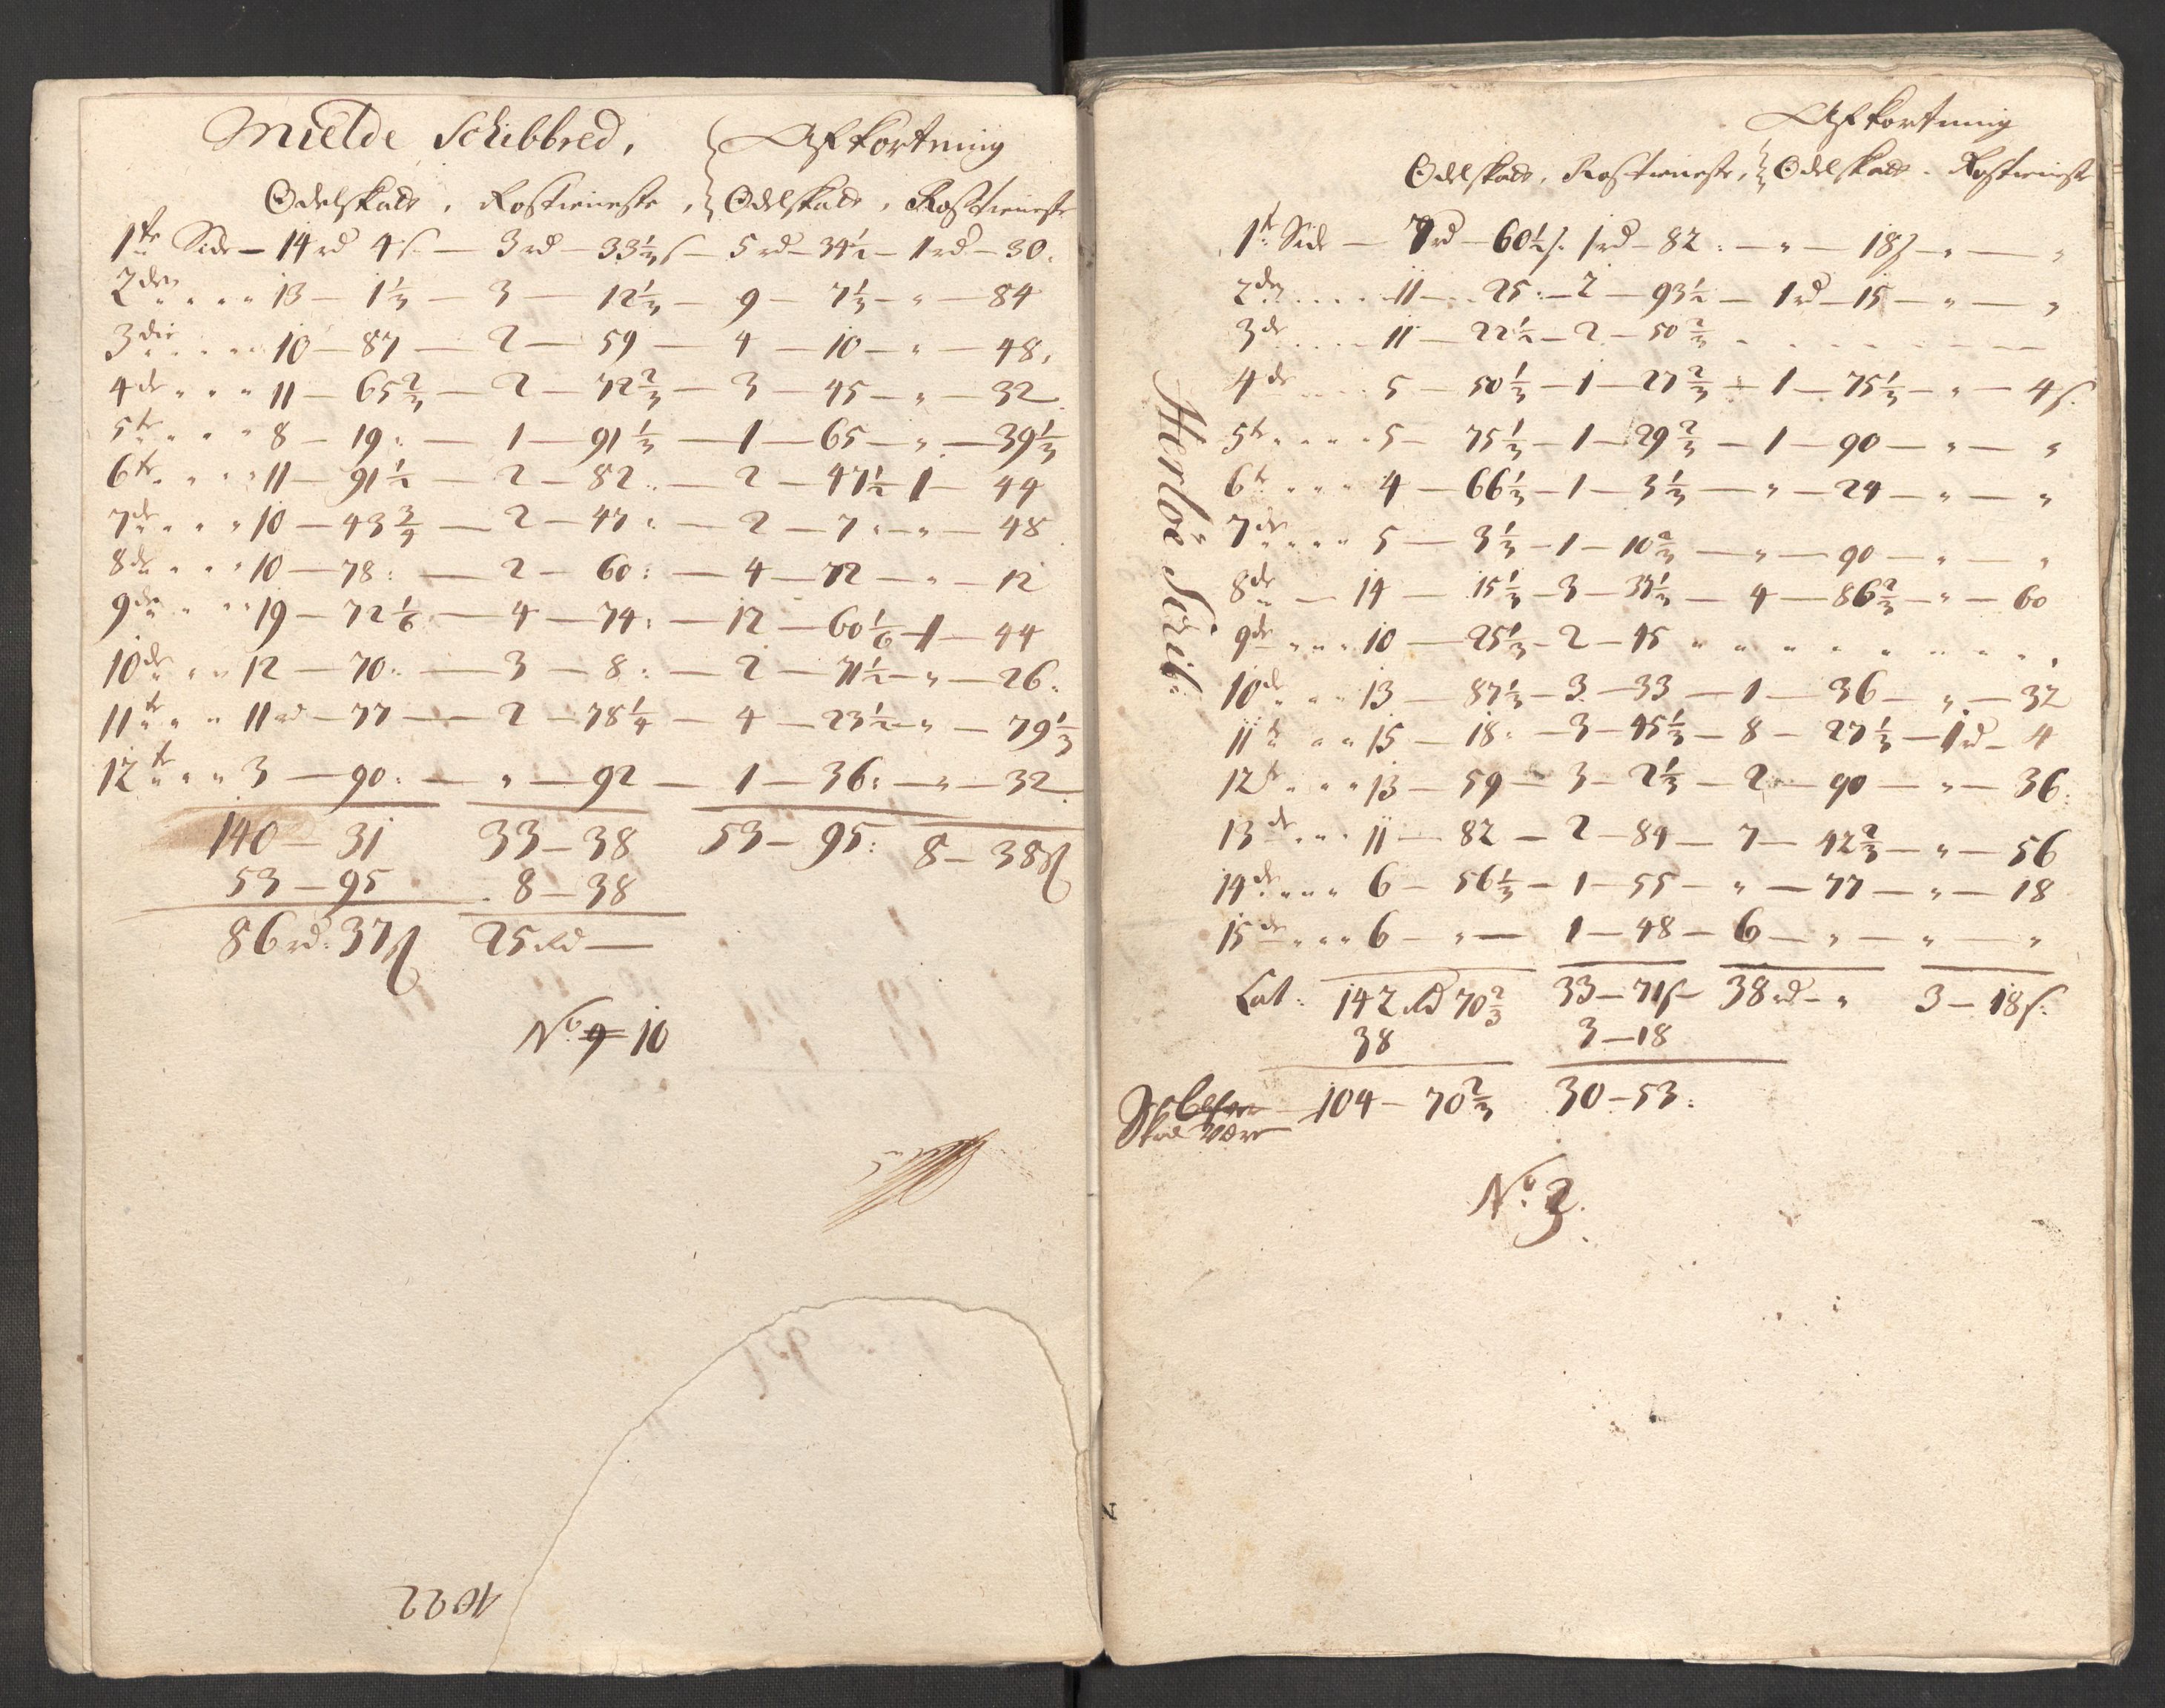 Mielde Schibbred, Afkortning
Odelskatt, Rostieneste, Odelskatt, Rostieneste
1te Side - 14 rd 4 s - 3 rd - 33 1/3 s - 5 rd - 34 1/2 - 1 rd - 30.
2den " " " 13 - 1 1/3 - 3 - 12 1/3 - 9 - 7 1/3 - " - 84
3die " " " 10 - 87 - 2 - 59 - 4 - 10 - " - 48,
4de " " " 11 - 65 2/3 - 2 - 72 2/3 - 3 - 45 - " - 32
5te " " " 8 - 19: - 1 - 91 1/3 - 1 - 65 - " - 39 1/3
6te " " " 11 - 91 1/2 - 2 - 82: - 2 - 47 1/2 1 - 44
7de " " " 10 - 43 3/4 - 2 - 47: - 2 - 7: - " - 48
8de " " " 10 - 78: - 2 - 60: - 4 - 72 - " - 12
9de " " " 19 - 72 1/6 - 4 - 74: - 12 - 60 1/6 - 1 - 44
10de " " 12 - 70: - 3 - 8: - 2 - 71 1/2 - " - 26:
11te " " 11 rd - 77 - 2 - 78 1/4 - 4 - 23 1/2 - " - 79 1/3
12te " " 3 - 90: - " - 92 - 1 - 36: - " - 32
140 - 31 33 - 38 53 - 95: 8 - 38 s
53 - 95 8 - 38
86 rd: 37 s 25 rd -
No 9 10
4022
Afkortning
Odelskatt, Rostieneste, Odelskatt, Rostieneste
1te Side - 9 rd - 60 1/2 s. 1 rd - 82: - " - 18 s - " - "
2den .... 11 - 25: - 2 - 93 1/2 - 1 rd - 15 - " - "
3de .... 11 - 22 1/2 - 2 - 50 2/3
4de .... 5 - 50 1/3 - 1 - 27 2/3 - 1 - 75 1/3 - " - 4 s.
5te " " " 5 - 75 1/3 - 1 - 29 2/3 - 1 - 90 - " - "
6te " " " 4 - 66 1/3 - 1 - 3 1/3 - " - 24 - " - "
7de " " " 5 - 3 1/3 - 1 - 10 2/3 - " - 90 - " - "
8de - 14 - 15 1/3 - 3 - 37 1/3 - 4 - 86 2/3 - " - 60
9de " " " 10 - 25 1/3 - 2 - 45 " " " " " " "
10de " " 13 - 87 1/3 - 3 - 33 - 1 - 36 - " - 32
11te " " 15 - 18: - 3 - 45 1/3 - 8 - 27 1/3 - 1 rd - 4
12te " " 13 - 59 - 3 - 2 1/3 - 2 - 90 - " - 36:
13de " " 11 - 82 - 2 - 84 - 7 - 42 2/3 - " - 56
14de " " " 6 - 56 1/3 - 1 - 55 - " - 77 - " - 18
15de " " " 6 - " - 1 - 48 - 6 - " - " - "
Lat: 142 rd 70 2/3 33 - 71 s - 38 rd - " 3 - 18 s.
38 3 - 18
104 - 70 2/3 30 - 53:
Skal være
No. 3.
Herlöe Skib: